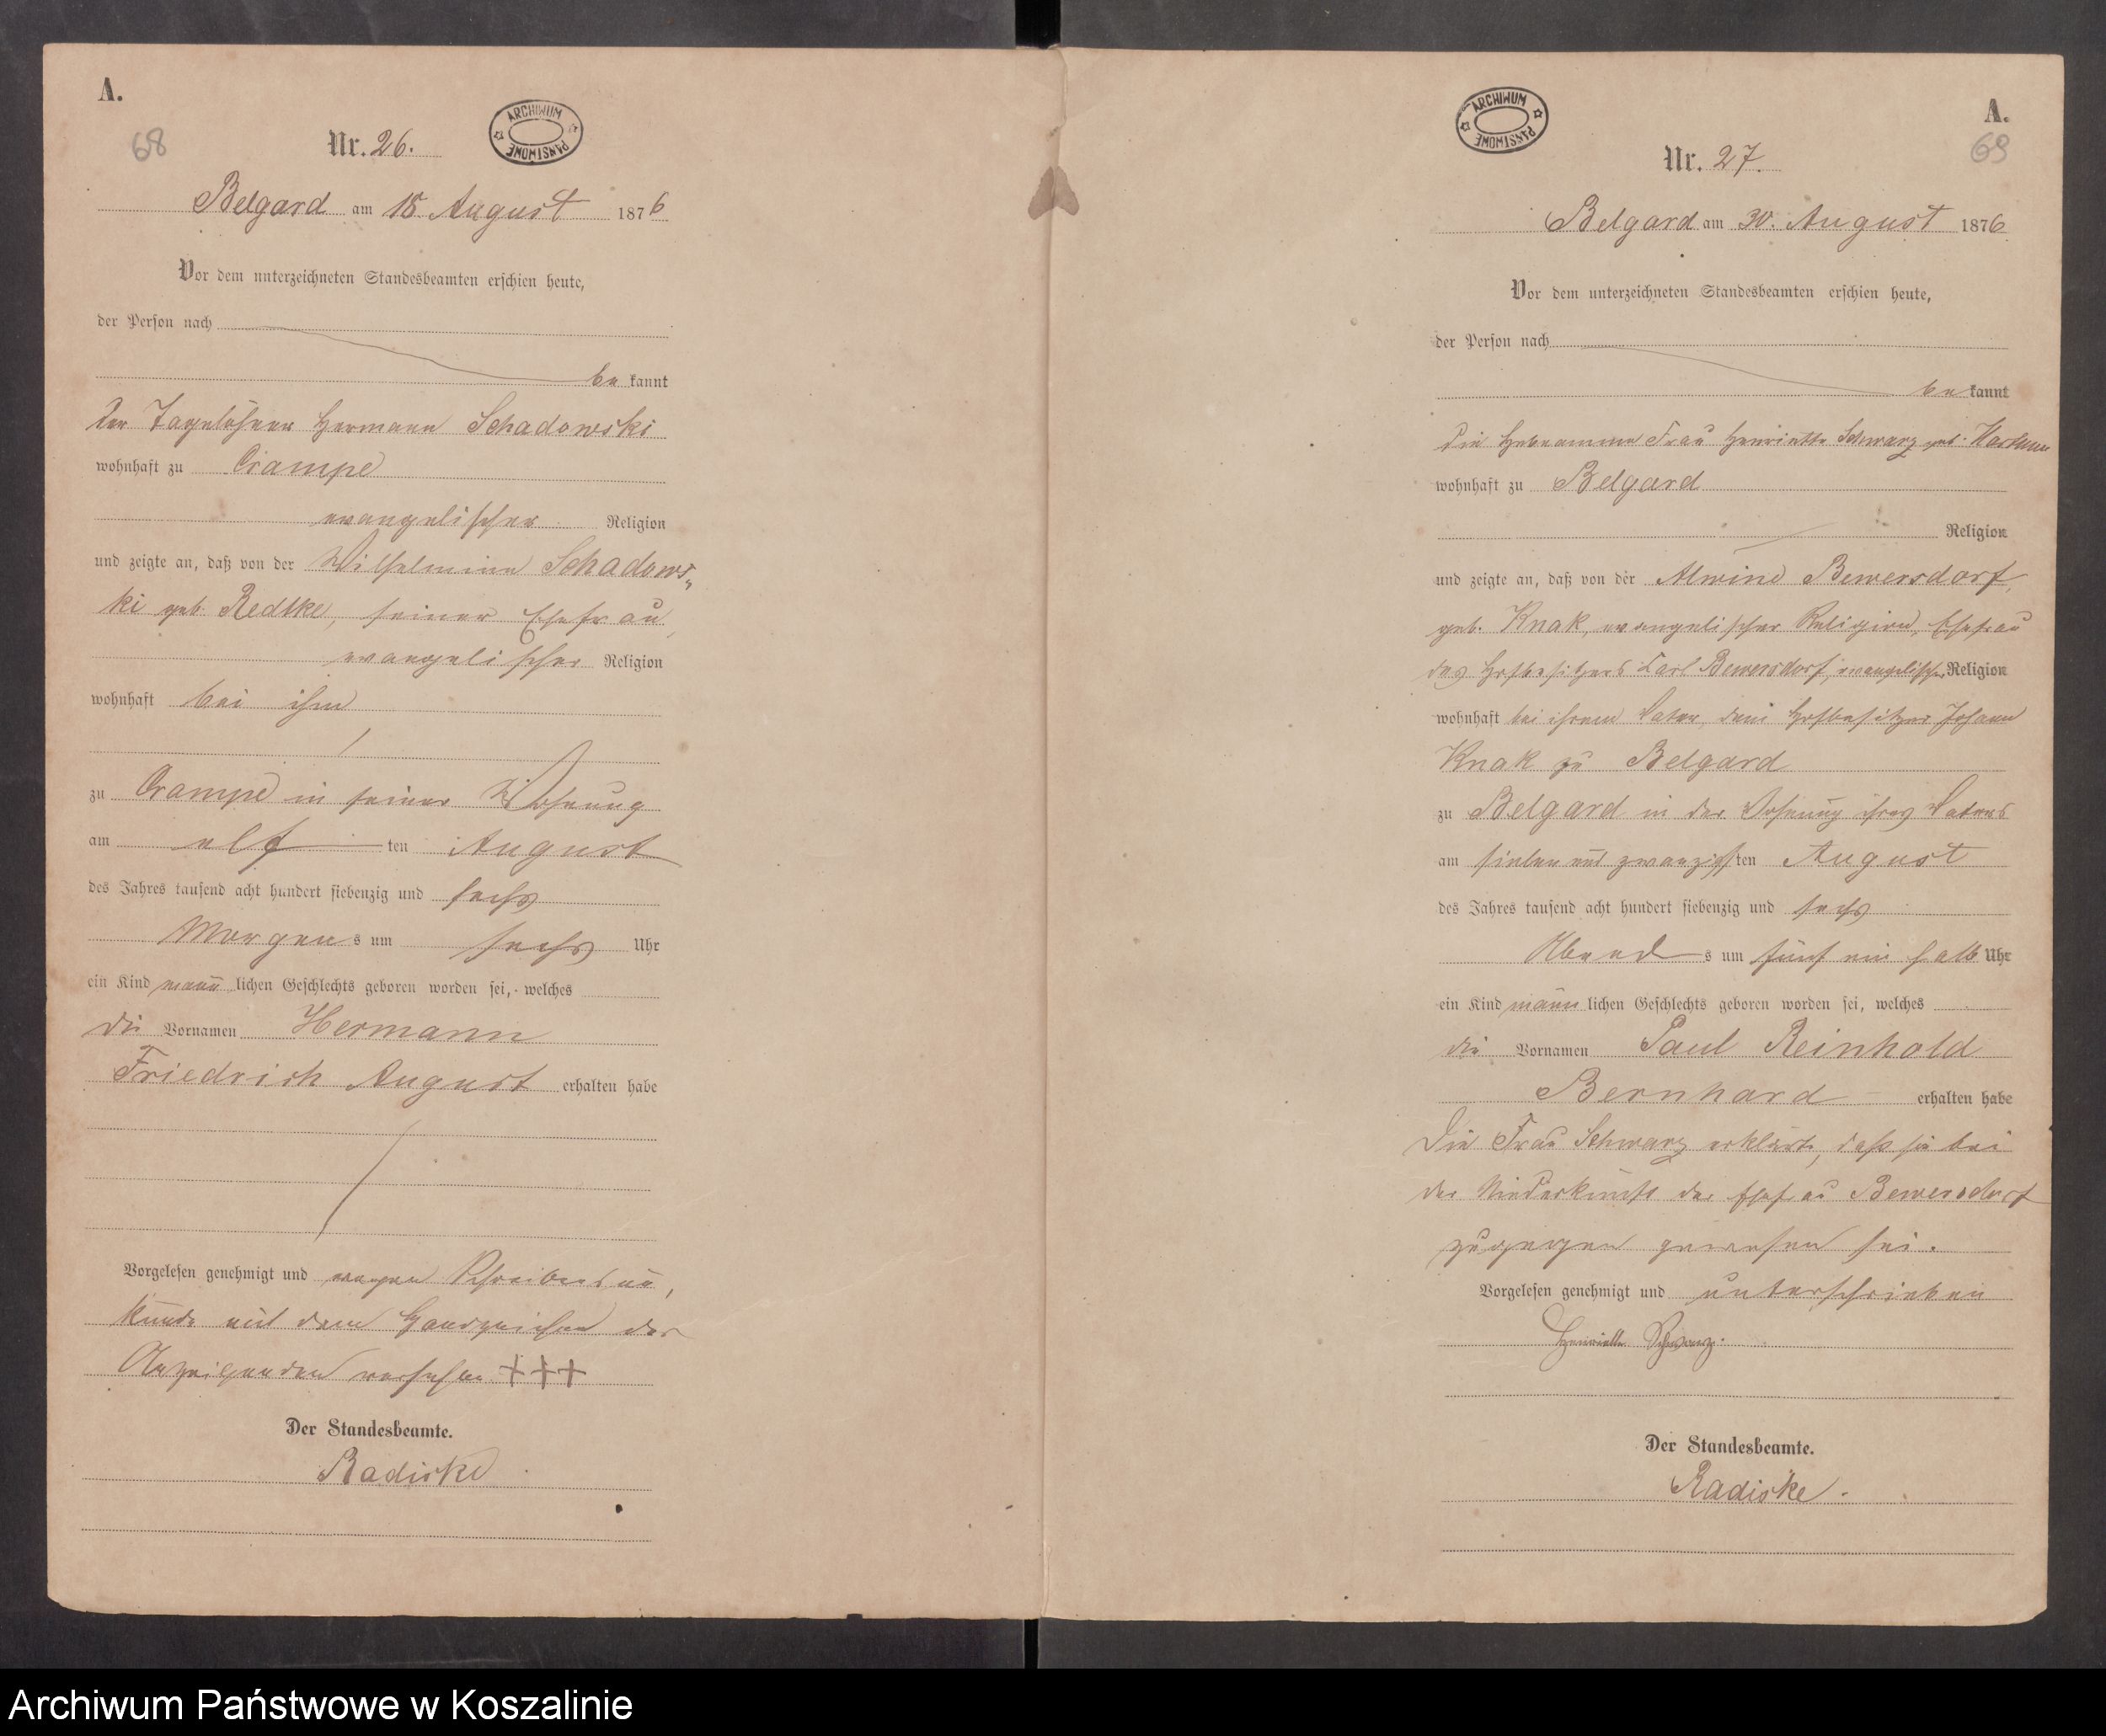 A.
68
Nr. 26.
ARCHIWUM PAŃSTWOWE
Belgard am 18 August 1876
Vor dem unterzeichneten Standesbeamten erschien heute,
der Person nach
be kannt
der Tagelöhner Hermann Schadowski
wohnhaft zu Crampe
evangelischer Religion
und zeigte an, daß von der Wilhelmine Schadows-
ki geb. Redtke, seiner Ehefrau,
evangelischer Religion
wohnhaft bei ihm
zu Crampe in seiner Wohnung
am elf ten August
des Jahres tausend acht hundert siebenzig und sechs
Morgens um sechs Uhr
ein Kind männlichen Geschlechts geboren worden sei, welches
die Vornamen Hermann
Friedrich August erhalten habe
Vorgelesen genehmigt und wegen Schreibensun-
kunde mit dem Handzeichen des
Anzeigenden versehen +++
Der Standesbeamte.
Radiske
A.
69
ARCHIWUM PAŃSTWOWE
Nr. 27.
Belgard am 30. August 1876
Vor dem unterzeichneten Standesbeamten erschien heute,
der Person nach
be kannt
die Hebeamme Frau Henriette Schwarz geb.
wohnhaft zu Belgard
Religion
und zeigte an, daß von der Alwine Bewersdorf,
geb. Knak, evangelischer Religion, Ehefrau
des Hofbesitzers Carl Bewersdorf, evangelischer Religion
wohnhaft bei ihrem Vater, dem Hofbesitzer Johann
Knak zu Belgard
zu Belgard in der Wohnung ihres Vaters
am sieben und zwanzigsten August
des Jahres tausend acht hundert siebenzig und sechs
Abends um fünf ein halb Uhr
ein Kind männlichen Geschlechts geboren worden sei, welches
die Vornamen Paul Reinhold
Bernhard erhalten habe
Die Frau Schwarz erklärte, daß sie bei
der Niederkunft der Ehefrau Bewersdorf
zugegen gewesen sei.
Vorgelesen genehmigt und unterschrieben
Henriette Schwarz.
Der Standesbeamte.
Radiske.
Archiwum Państwowe w Koszalinie